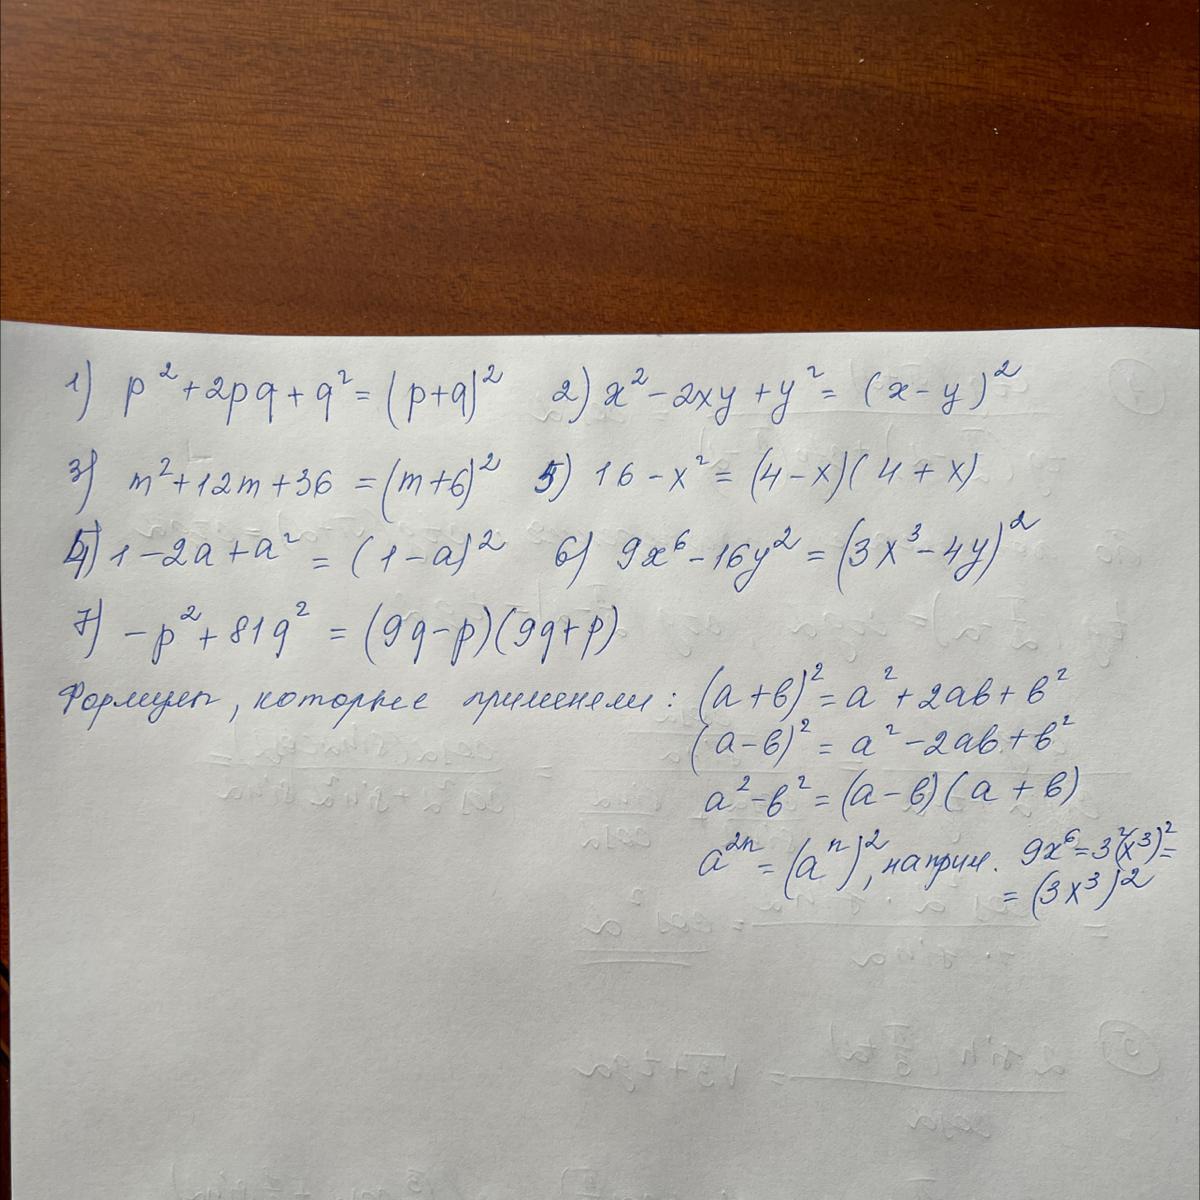 1) p² + 2pq + q² = (p+q)² 2) x² - 2xy + y² = (x - y)²
3) m² + 12m + 36 = (m+6)² 5) 16 - x² = (4 - x)(4 + x)
4) 1 - 2a + a² = (1 - a)² 6) 9x⁶ - 16y² = (3x³ - 4y)²
7) -p² + 81q² = (9q - p)(9q + p)
Формулы, которые применяли: (a + b)² = a² + 2ab + b²
(a - b)² = a² - 2ab + b²
a² - b² = (a - b)(a + b)
a²ⁿ = (aⁿ)², наприм. 9x⁶ = 3²(x³)² =
= (3x³)²